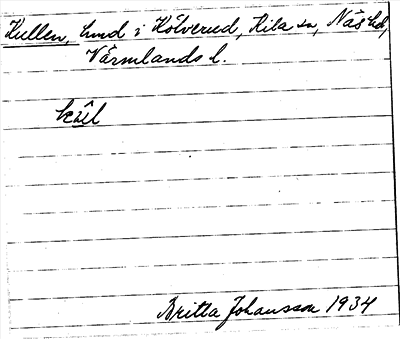 Kullen, lund i Hölverud, Kila sn, Näs hd,
Värmlands l.
kûl
Britta Johansson 1934